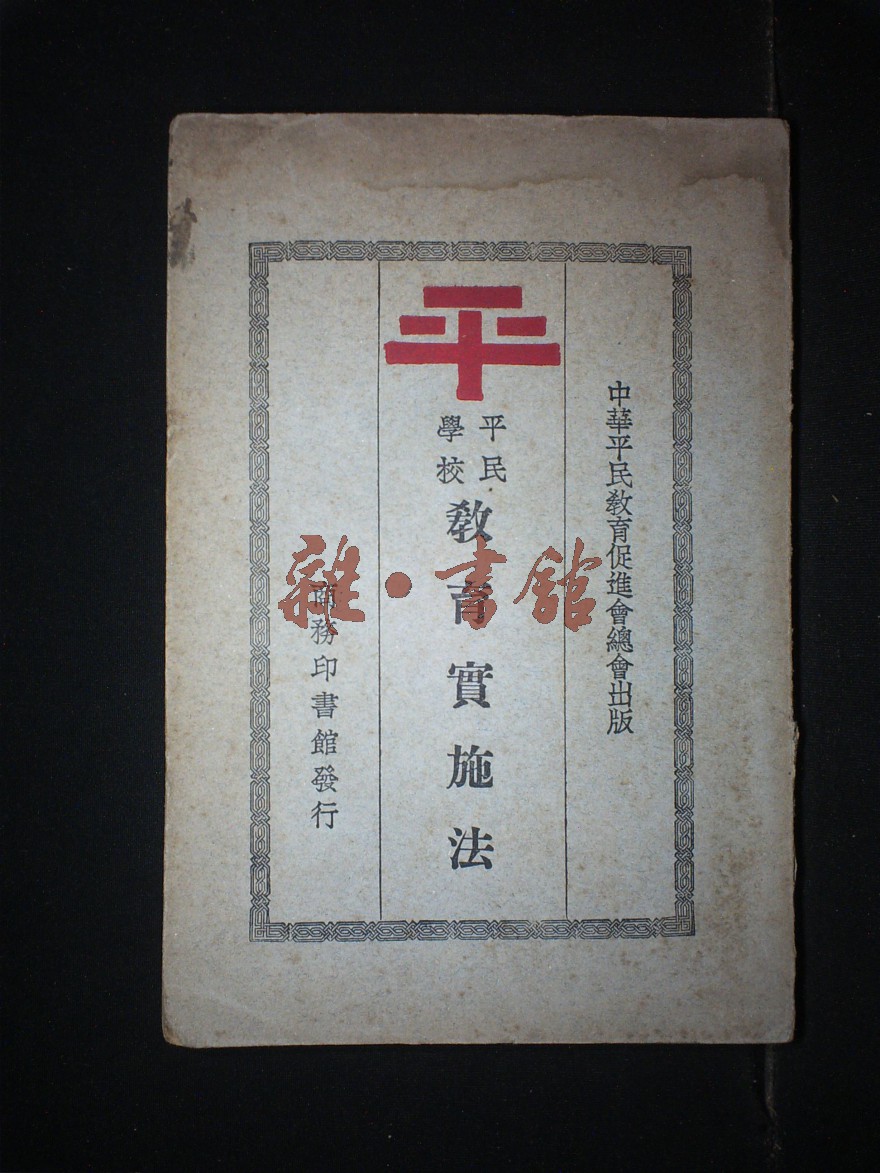 中華平民教育促進會總會出版
平
平民
學校
教育實施法
商務印書館發行
雜·書館